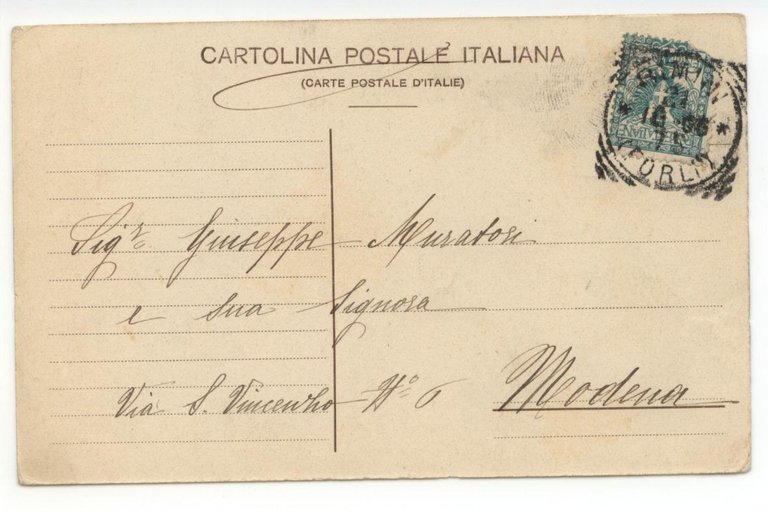 CARTOLINA POSTALE ITALIANA
(CARTE POSTALE D'ITALIE)
RIMINI
21
10 06
(FORLI)
Sigr. Giuseppe Muratori
e sua Signora
Via S. Vincenzo No 6
Modena